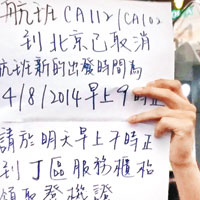 航班 CA112/CA102
到 北京已取消
航班新的出發時間為
4/8/2014 早上9時正
請於明天早上7時正
到 J 區服務櫃枱
領取登機證